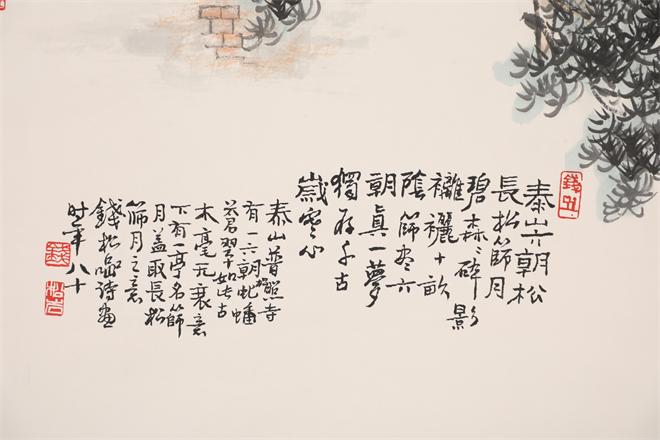 泰山六朝松
長松篩月
碧森々碎影
襹十畝
陰篩盡六
朝真一夢
獨存千古
歲寒心
泰山普照寺
有一六朝虬蟠
蒼翠如此古
木毫无衰意
下有一亭名篩
月蓋取長松
篩月之意
錢松嵒詩畫
时年八十
錢
松嵒